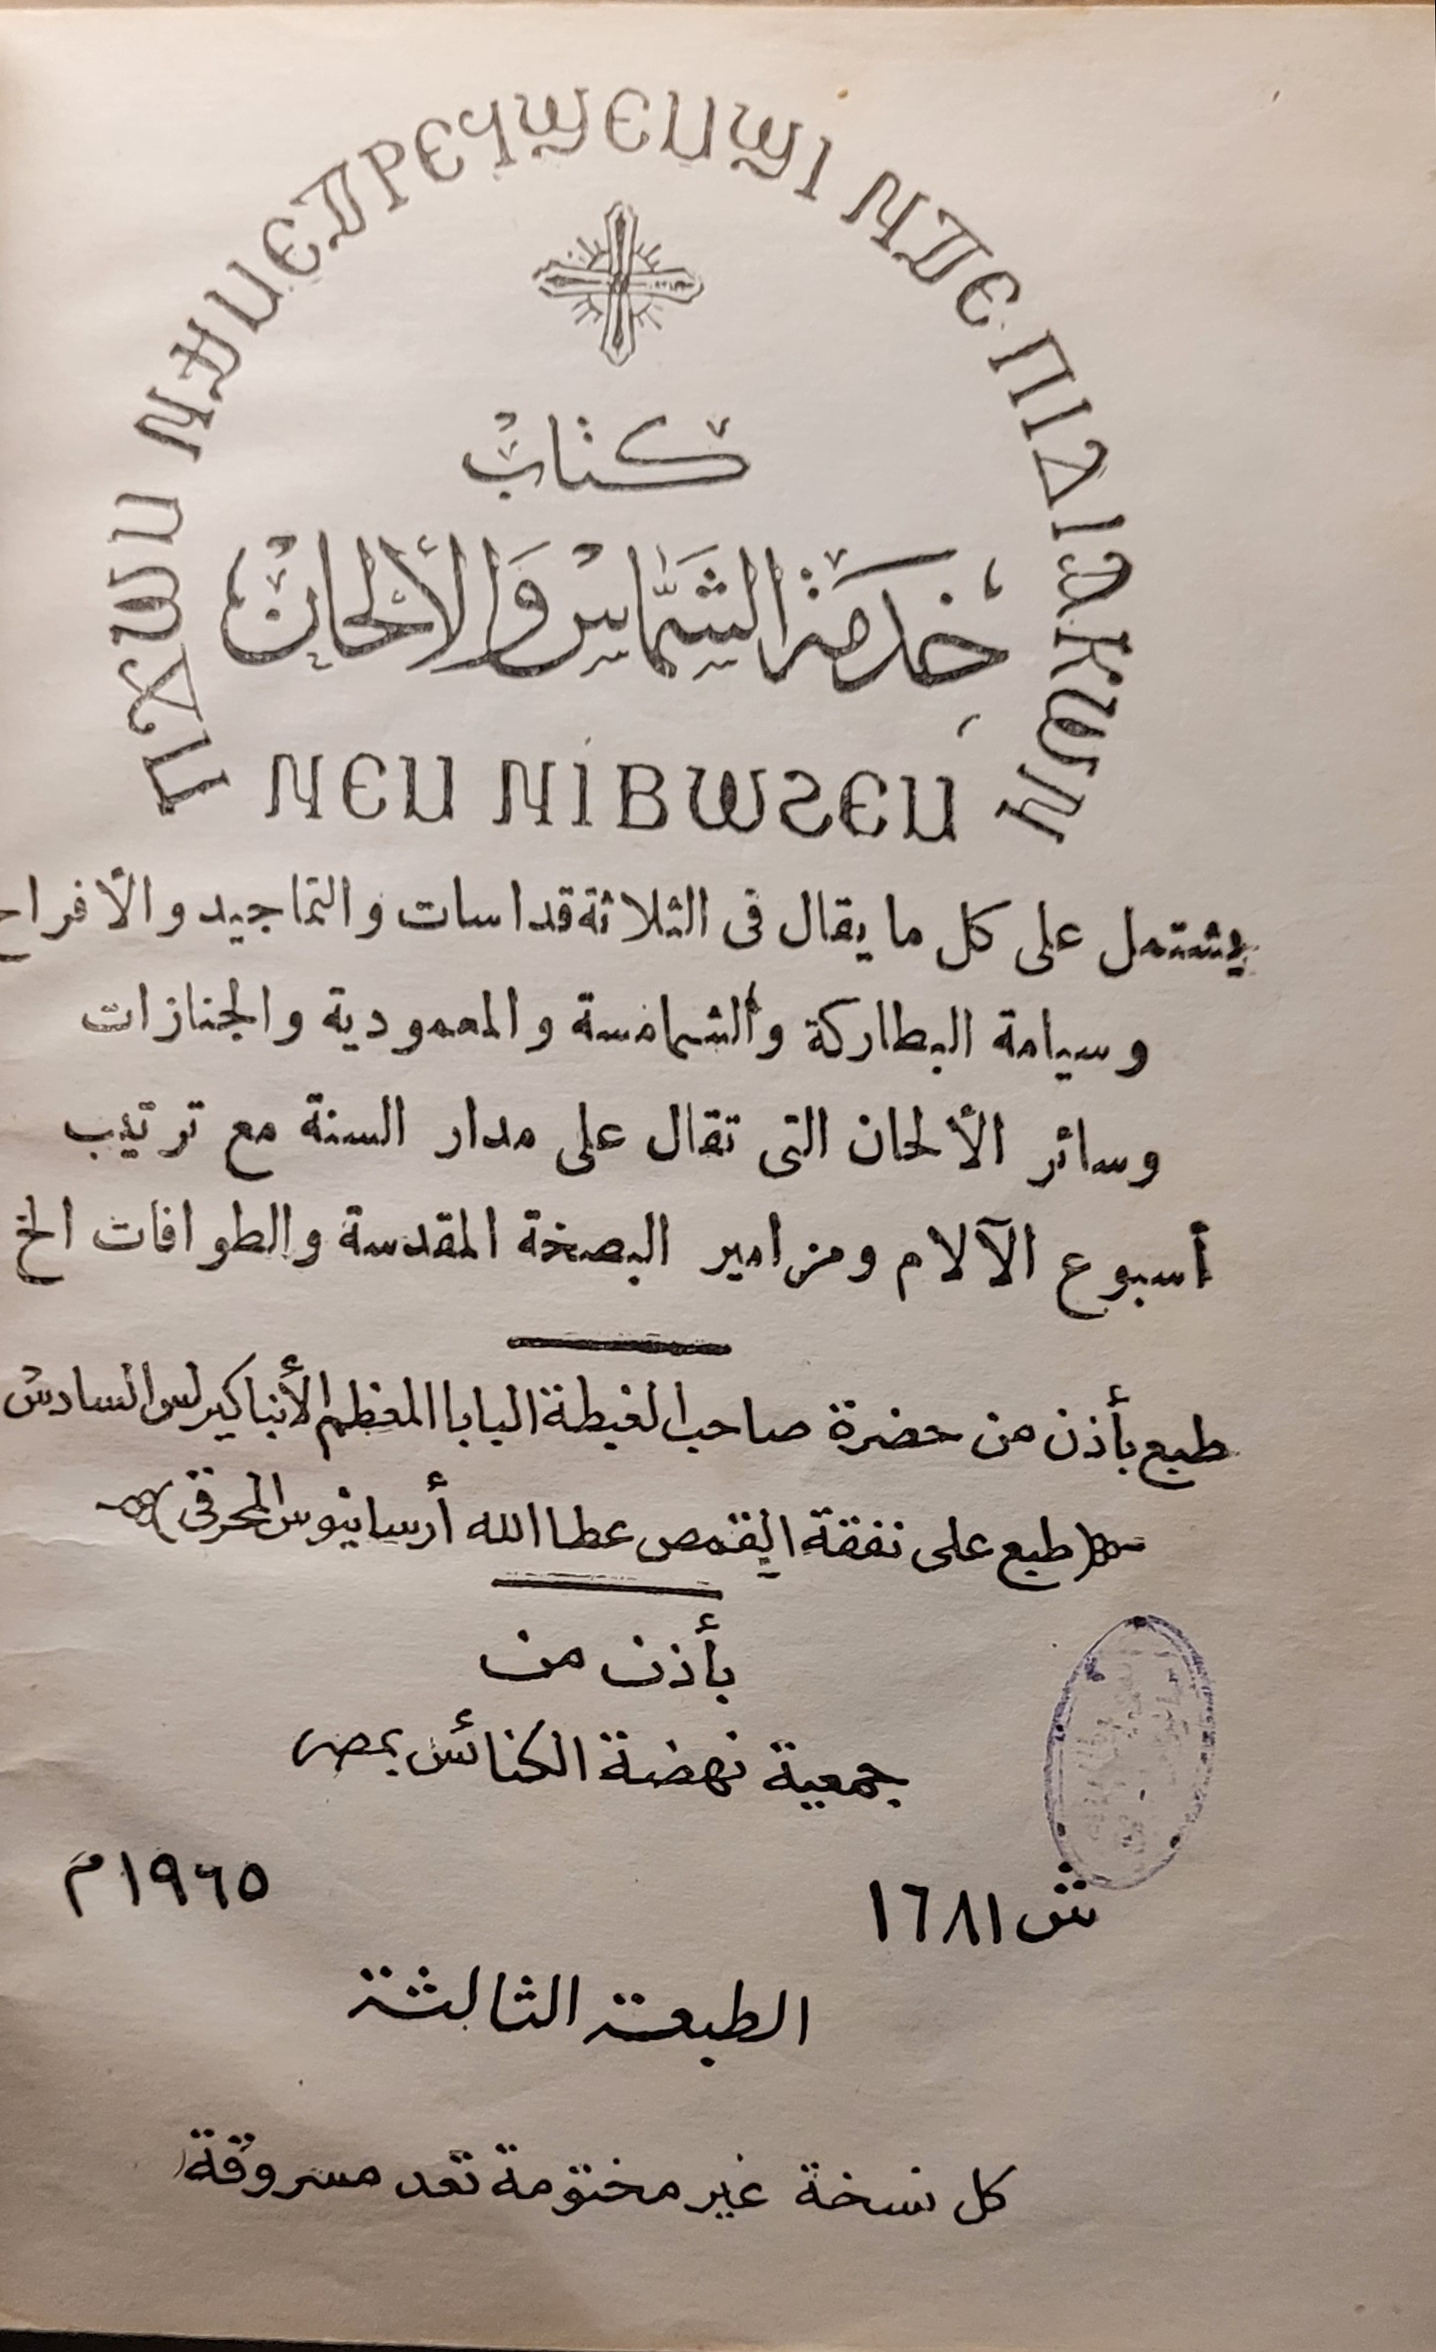 ⲠϪⲰⲘ ⲚϮⲘⲈⲦⲢⲈϤϢⲈⲘϢⲒ ⲚⲦⲈ ⲠⲒⲆⲒⲀⲔⲰⲚ
كتاب
خِدمَة الشَّمَّاسْ وَالألحانْ
ⲚⲈⲘ ⲚⲒⲂⲰϨⲈⲘ
يشتمل على كل ما يقال فى الثلاثة قداسات والتماجيد والأفراح
وسيامة البطاركة والشمامسة والمعمودية والجنازات
وسائر الألحان التى تقال على مدار السنة مع ترتيب
أسبوع الآلام ومزامير البصخة المقدسة والطوافات الخ
طبع بأذن من حضرة صاحب الغبطة البابا المعظم الأنبا كيرلس السادس
(طبع على نفقة القمص عطا الله أرسانيوس المحرقى)
بأذن من
جمعية نهضة الكنائس بمصر
ش ١٦٨١ ١٩٦٥م
الطبعة الثالثة
كل نسخة غير مختومة تعد مسروقة